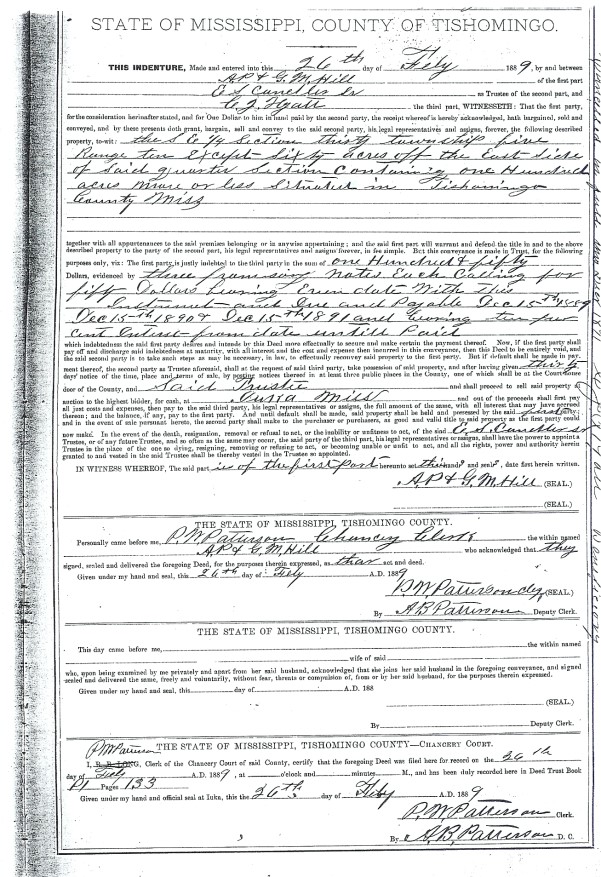 STATE OF MISSISSIPPI, COUNTY OF TISHOMINGO.
THIS INDENTURE, Made and entered into this 26th day of Feby 1889, by and between
A P & G. M. Hill of the first part
as Trustee of the second part, and
the third part, WITNESSETH: That the first party,
for the consideration hereinafter stated, and for One Dollar to him in hand paid by the second party, the receipt whereof is hereby acknowledged, hath bargained, sold and
conveyed, and by these presents doth grant, bargain, sell and convey to the said second party, his legal representatives and assigns, forever, the following described
property, to-wit: the S E 1/4 Section thirty township five
Range ten Except Sixty acres off the East side
of Said quarter Section Containing one Hundred
acres more or less Situated in Tishomingo
County Miss
together with all appurtenances to the said premises belonging or in anywise appertaining; and the said first party will warrant and defend the title in and to the above
described property to the party of the second part, his legal representatives and assigns forever, in fee simple. But this conveyance is made in Trust, for the following
purposes only, viz: The first party is justly indebted to the third party in the sum of one Hundred & fifty
Dollars, evidenced by three promisory Notes Each Calling for
fifty Dollars bearing Even date With This
Instrument and Due and Payable Dec 15th 1889
Dec 15th 1890 & Dec 15th 1891 and bearing ten per
cent Interest from date untill Paid
which indebtedness the said first party desires and intends by this Deed more effectually to secure and make certain the payment thereof. Now, if the first party shall
pay off and discharge said indebtedness at maturity, with all interest and the cost and expense thus incurred in this conveyance, then this Deed to be entirely void, and
the said second party is to take such steps as may be necessary, in law, to effectually reconvey said property to the first party. But if default shall be made in pay-
ment thereof, the second party as Trustee aforesaid, shall at the request of said third party, take possession of said property, and after having given thirty
days' notice of the time, place and terms of sale, by posting notices thereof in at least three public places in the County, one of which shall be at the Courthouse
door of the County, and Said Trustee and shall proceed to sell said property at
auction to the highest bidder, for cash, at Iuka Miss and out of the proceeds shall first pay
all just costs and expenses, then pay to the said third party, his legal representatives or assigns, the full amount of the same, with all interest that may have accrued
thereon; and the balance, if any, pay to the first party. And until default shall be made, said property shall be held and possessed by the said first party;
and in the event of sale pursuant hereto, the second party shall make to the purchaser or purchasers, as good and valid title to said property as the first party could
now make. In the event of the death, resignation, removal or refusal to act, or the inability or unfitness to act, of the said
Trustee, or of any future Trustee, and so often as the same may occur, the said party of the third part, his legal representatives or assigns, shall have the power to appoint a
Trustee in the place of the one so dying, resigning, removing or refusing to act, or becoming unable or unfit to act, and all the rights, power and authority herein
granted to and vested in the said Trustee shall be thereby vested in the Trustee so appointed.
IN WITNESS WHEREOF, The said part ies of the first Part hereunto set their hands and seals, date first herein written.
A. P. & G. M. Hill (SEAL.)
(SEAL.)
THE STATE OF MISSISSIPPI, TISHOMINGO COUNTY.
Personally came before me, P. M. Patterson Chancery Clerk the within named
A P & G. M. Hill who acknowledged that they
signed, sealed and delivered the foregoing Deed, for the purposes therein expressed, as thar act and deed.
Given under my hand and seal, this 26th day of Feby A.D. 1889
P. M. Patterson (SEAL)
By A B Patterson Deputy Clerk.
THE STATE OF MISSISSIPPI, TISHOMINGO COUNTY.
This day came before me, the within named
wife of said
who, upon being examined by me privately and apart from her said husband, acknowledged that she joins her said husband in the foregoing conveyance, and signed
sealed and delivered the same, freely and voluntarily, without fear, threats or compulsion of, from or by her said husband, for the purposes therein expressed.
Given under my hand and seal, this day of A.D. 188
(SEAL.)
By Deputy Clerk.
P M Patterson
THE STATE OF MISSISSIPPI, TISHOMINGO COUNTY—CHANCERY COURT.
I, Clerk of the Chancery Court of said County, certify that the foregoing Deed was filed here for record on the 26th
day of Feby A.D. 1889, at o'clock and minutes M., and has been duly recorded here in Deed Trust Book
P1 Pages 133
Given under my hand and official seal at Iuka, this the 26th day of Feby A.D. 1889
P. M. Patterson Clerk.
By A. B. Patterson D. C.